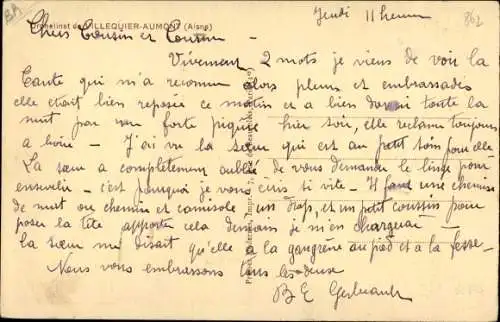 Orphelinat de VILLEQUIER-AUMONT (Aisne)
Jeudi 11 heures
862
Chers Cousin et Cousine -
Vivement 2 mots je viens de voir la
tante qui m'a reconnu alors pleurs et embrassades
elle était bien reposée ce matin et a bien dormi toute la
nuit par une forte piqure hier soir, elle réclame toujours
a boire - J'ai vu la sœur qui est au petit soin pour elle
La sœur a complètement oublié de vous demander le linge pour
ensevelir - c'est pourquoi je vous écris si vite - Il faut une chemise
de nuit ou chemin et camisole un drap, et un petit coussin pour
poser la tête apporter cela demain je m'en chargerai -
la sœur me disait qu'elle a la gangrène au pied et a la fesse -
Nous vous embrassons tous les deux
B E